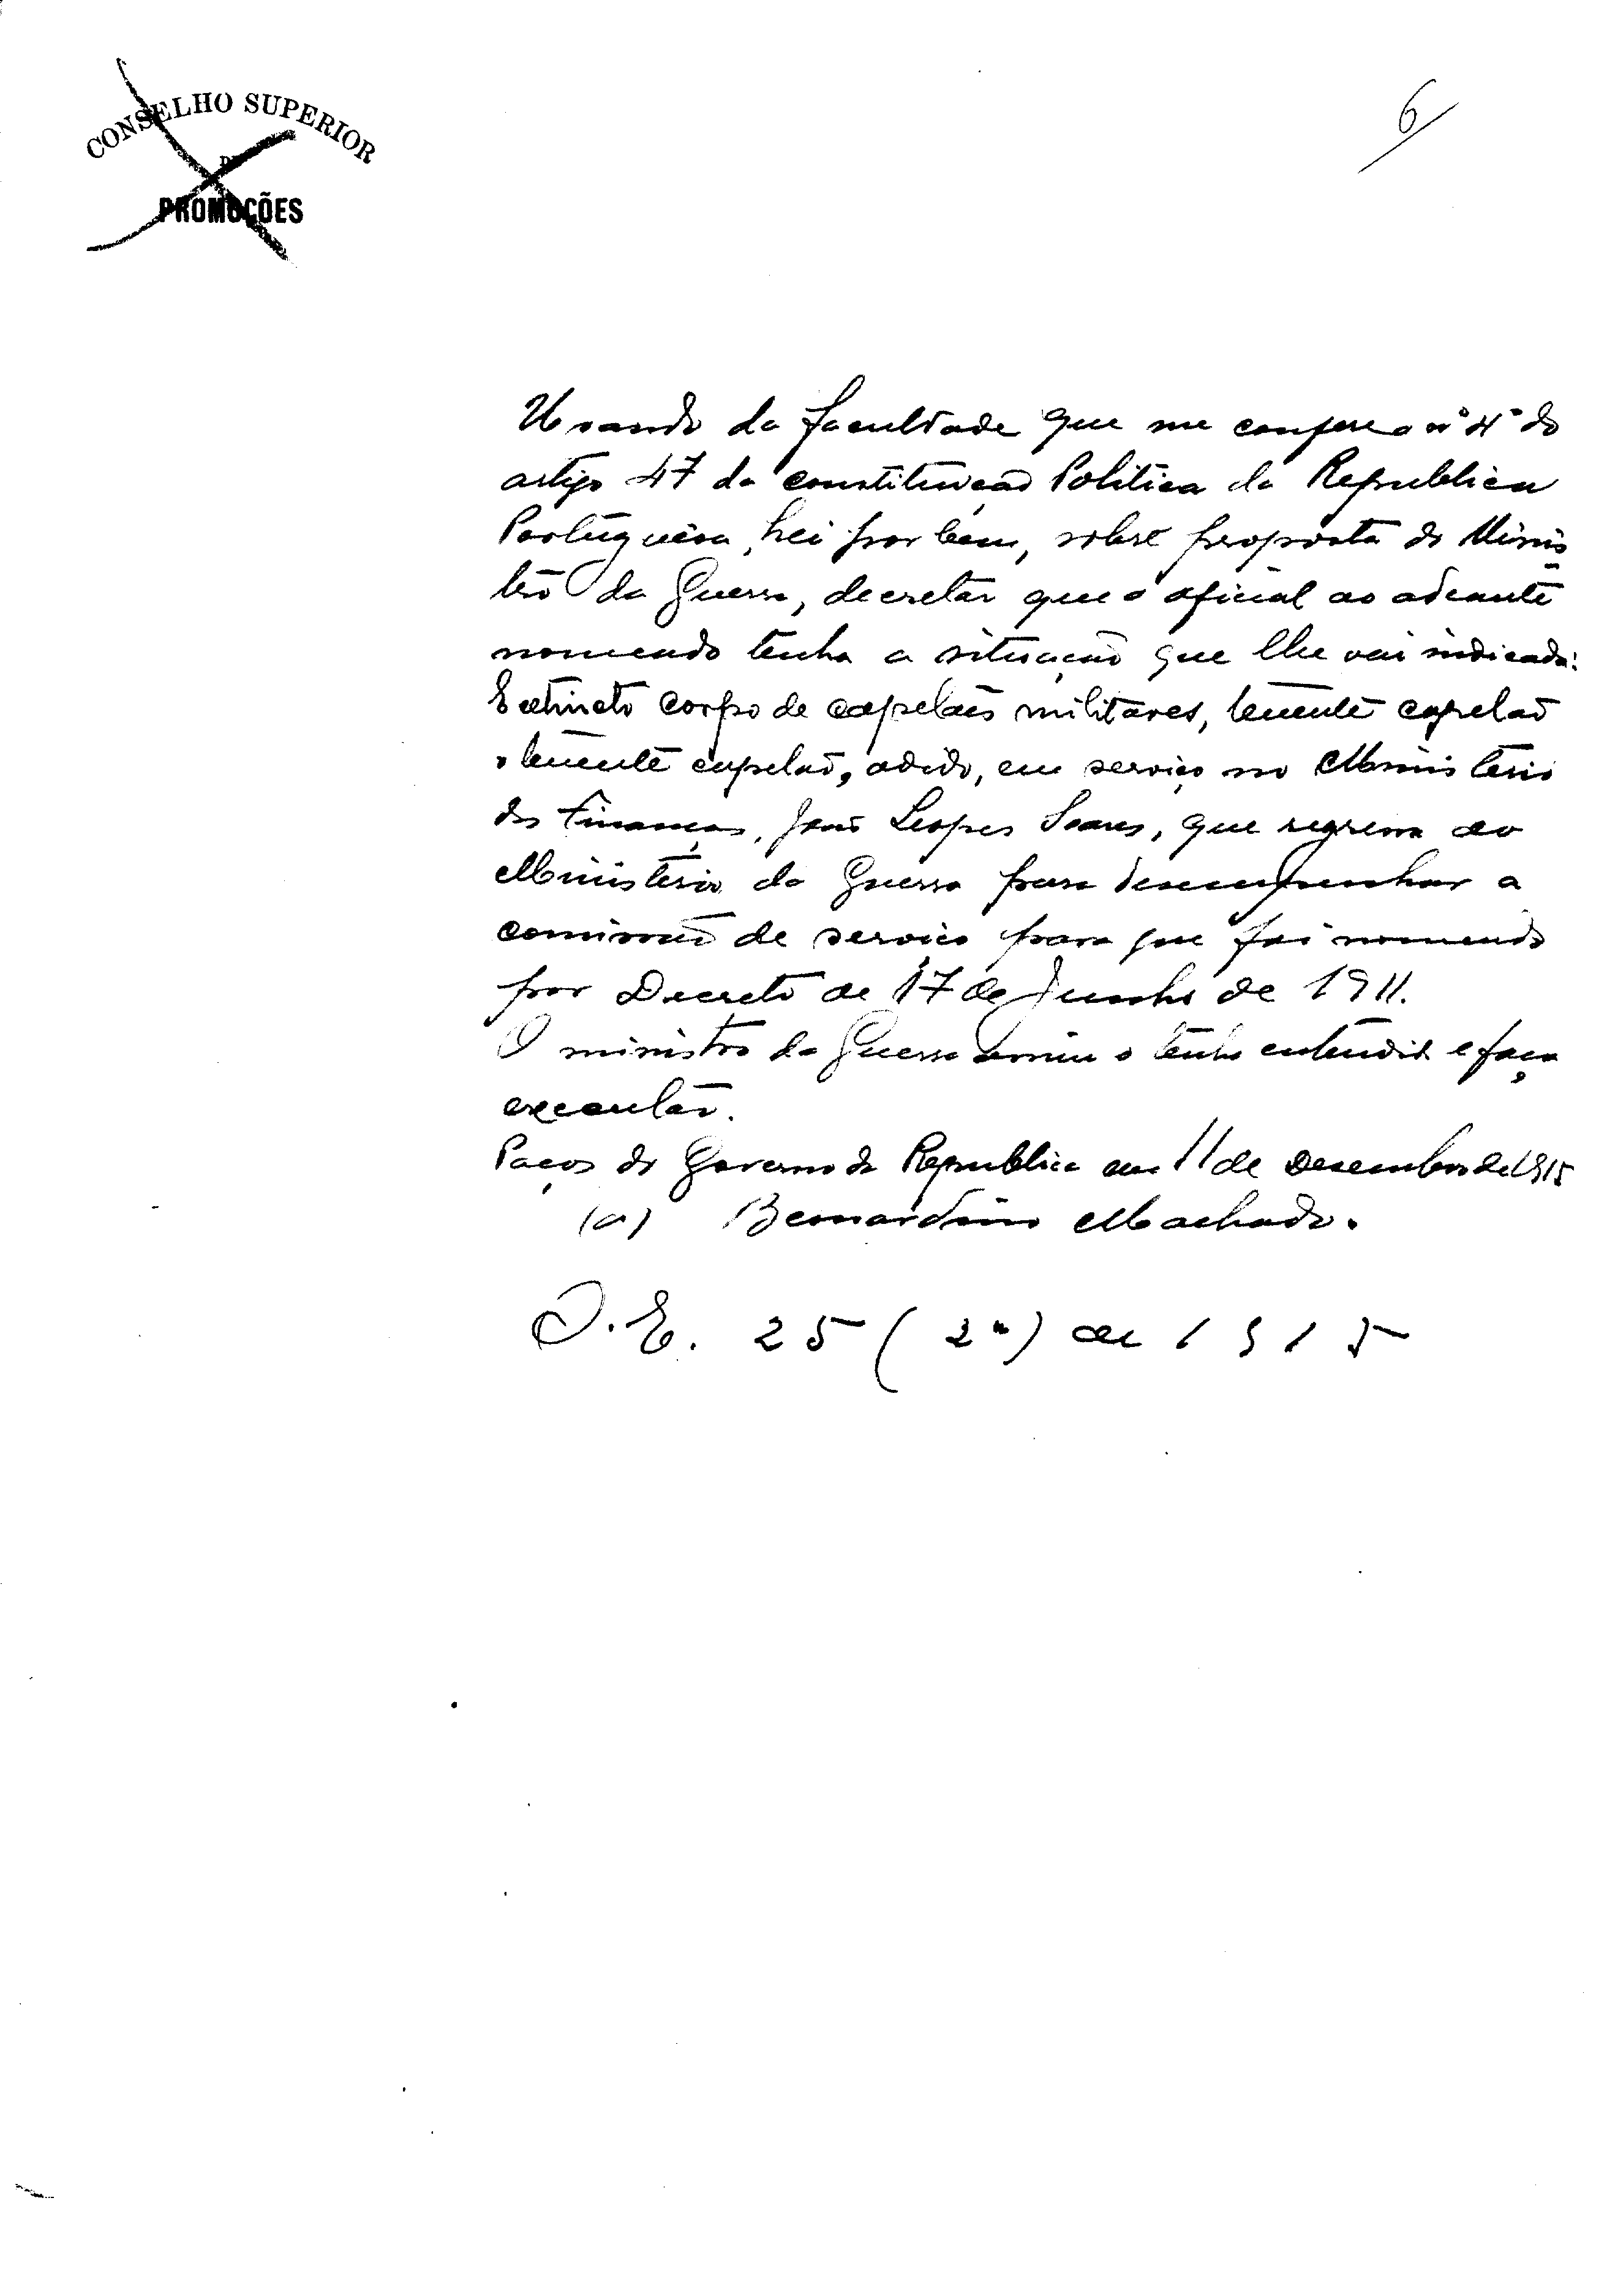 CONSELHO SUPERIOR
DE
PROMOÇÕES
6
Usando da faculdade que me confere o nº 4º do
artigo 47 da constituição Politica da Republica
Portuguêsa, hei por bem, sobre proposta do Minis
tro da Guerra, decretar que o oficial ao adeante
nomeado tenha a situação que lhe vai indicada:
Extincto corpo de capelães militares, tenente capelão
o tenente capelão, adido, em serviço no Ministerio
das Finanças, João Lopes Soares, que regressa ao
Ministerio da Guerra para desempenhar a
comissão de serviço para que foi nomeado
por Decreto de 17 de Junho de 1911.
O ministro da Guerra assim o tenha entendido e faça
executar.
Paços do Governo da Republica em 11 de Dezembro de 1915
(a) Bernardino Machado.
O.E. 25 (2ª) de 1915